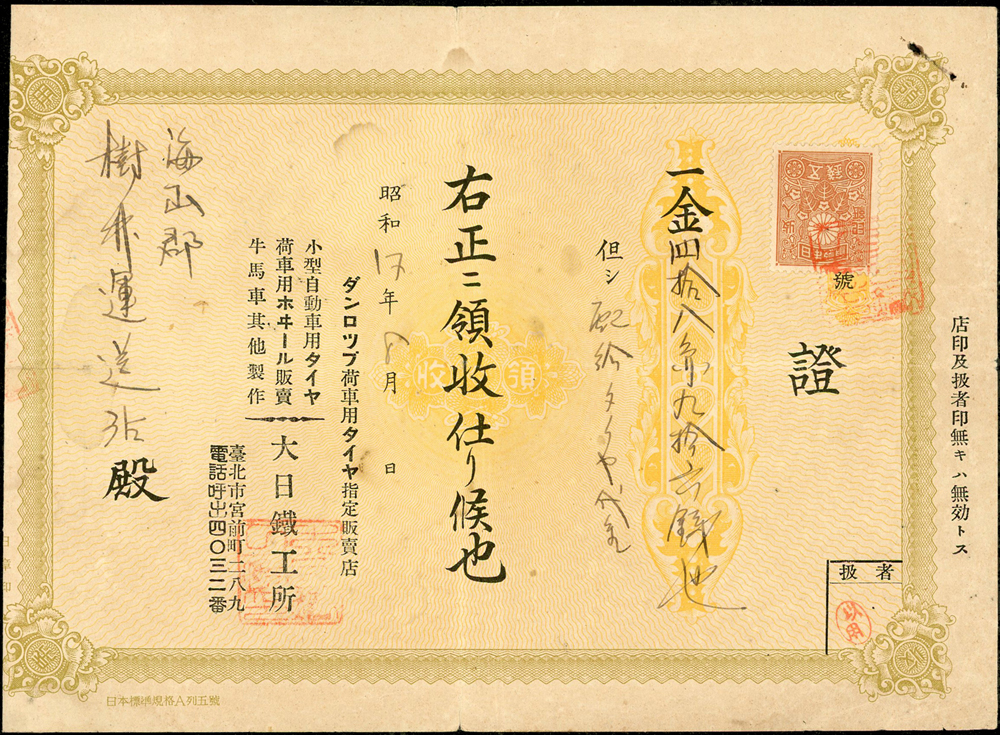 店印及扱者印無キハ無効トス
證
號
一金四拾八円九拾六錢也
但シ配給タイヤ代金
右正ニ領收仕リ候也
領收
昭和17年8月 日
ダンロツプ荷車用タイヤ指定販賣店
小型自動車用タイヤ
荷車用ホヰール販賣
牛馬車其他製作
大日鐵工所
臺北市宮前町二八九
電話呼出四〇三二番
海山郡
樹林運送店殿
扱者
日本標準規格A列五號